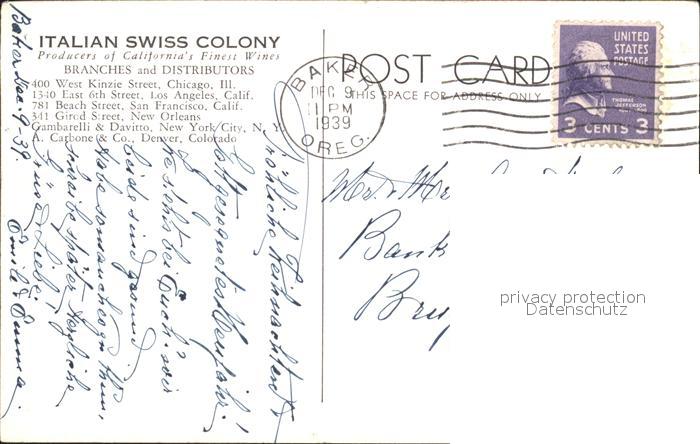 ITALIAN SWISS COLONY
Producers of California's Finest Wines
BRANCHES and DISTRIBUTORS
400 West Kinzie Street, Chicago, Ill.
1340 East 6th Street, Los Angeles, Calif.
781 Beach Street, San Francisco, Calif.
341 Girod Street, New Orleans
Gambarelli & Davitto, New York City, N. Y.
A. Carbone & Co., Denver, Colorado
POST CARD
THIS SPACE FOR ADDRESS ONLY
BAKER
DEC 9
11 PM
1939
OREG.
UNITED
STATES
POSTAGE
THOMAS
JEFFERSON
3 CENTS 3
Baker Dec. 9-39
Fröhliche Weihnachten &
beide sind gesund
schreibe später. Herzliche
Grüsse Liebe
Emil & Emma.
Mr. & Mr
Bank
Bry
privacy protection
Datenschutz